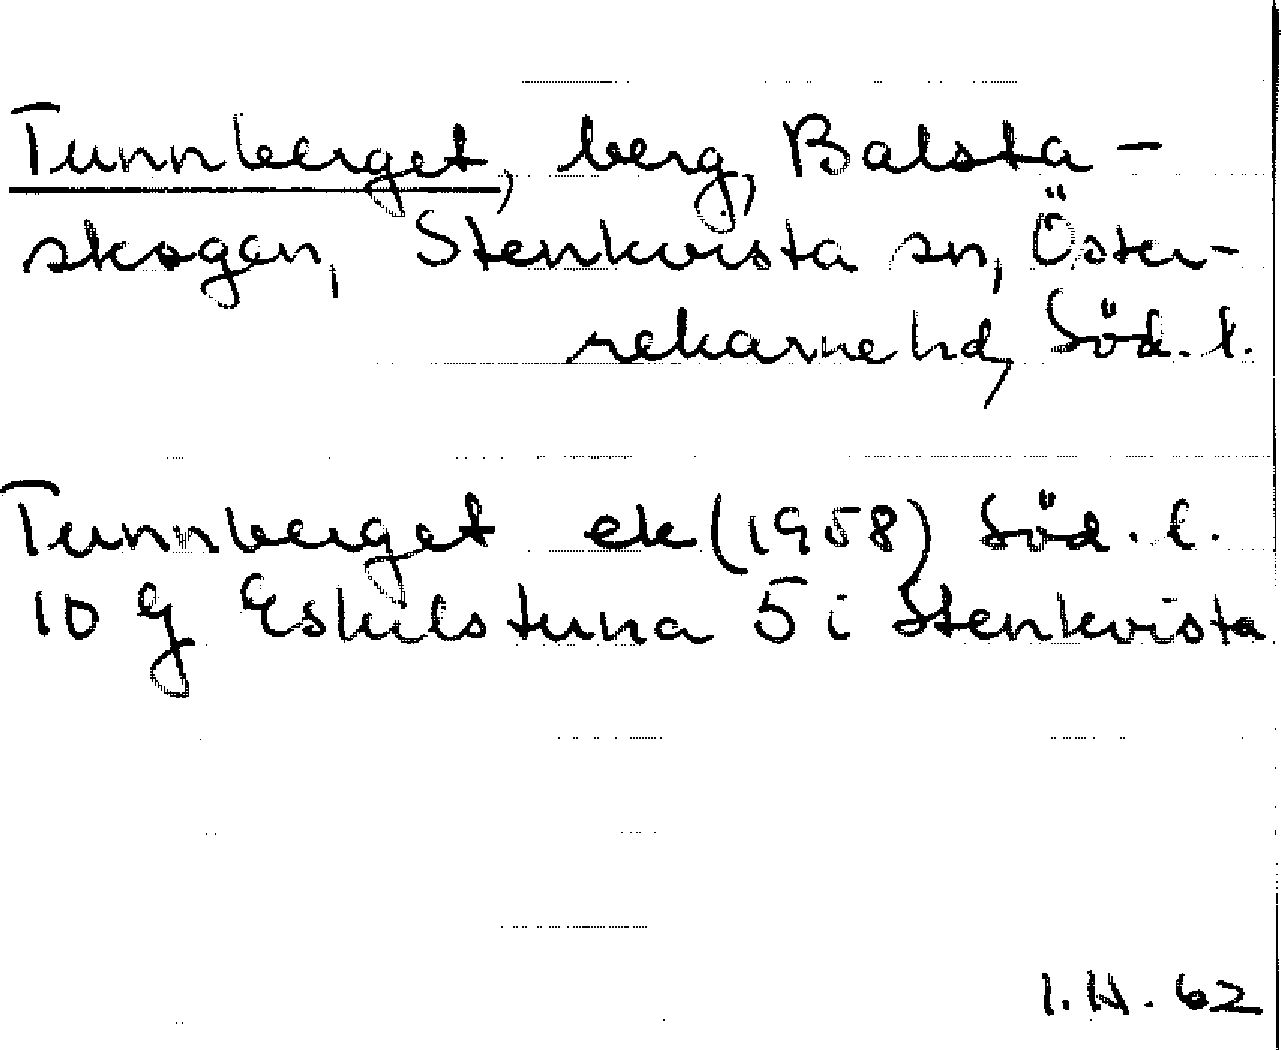 Tunnberget, berg, Balsta-
skogen, Stenkvista sn, Öster-
rekarne hd, Söd. l.
Tunnberget ek (1958) Söd. l.
10 g Eskilstuna 5 i Stenkvista
I.H. 62